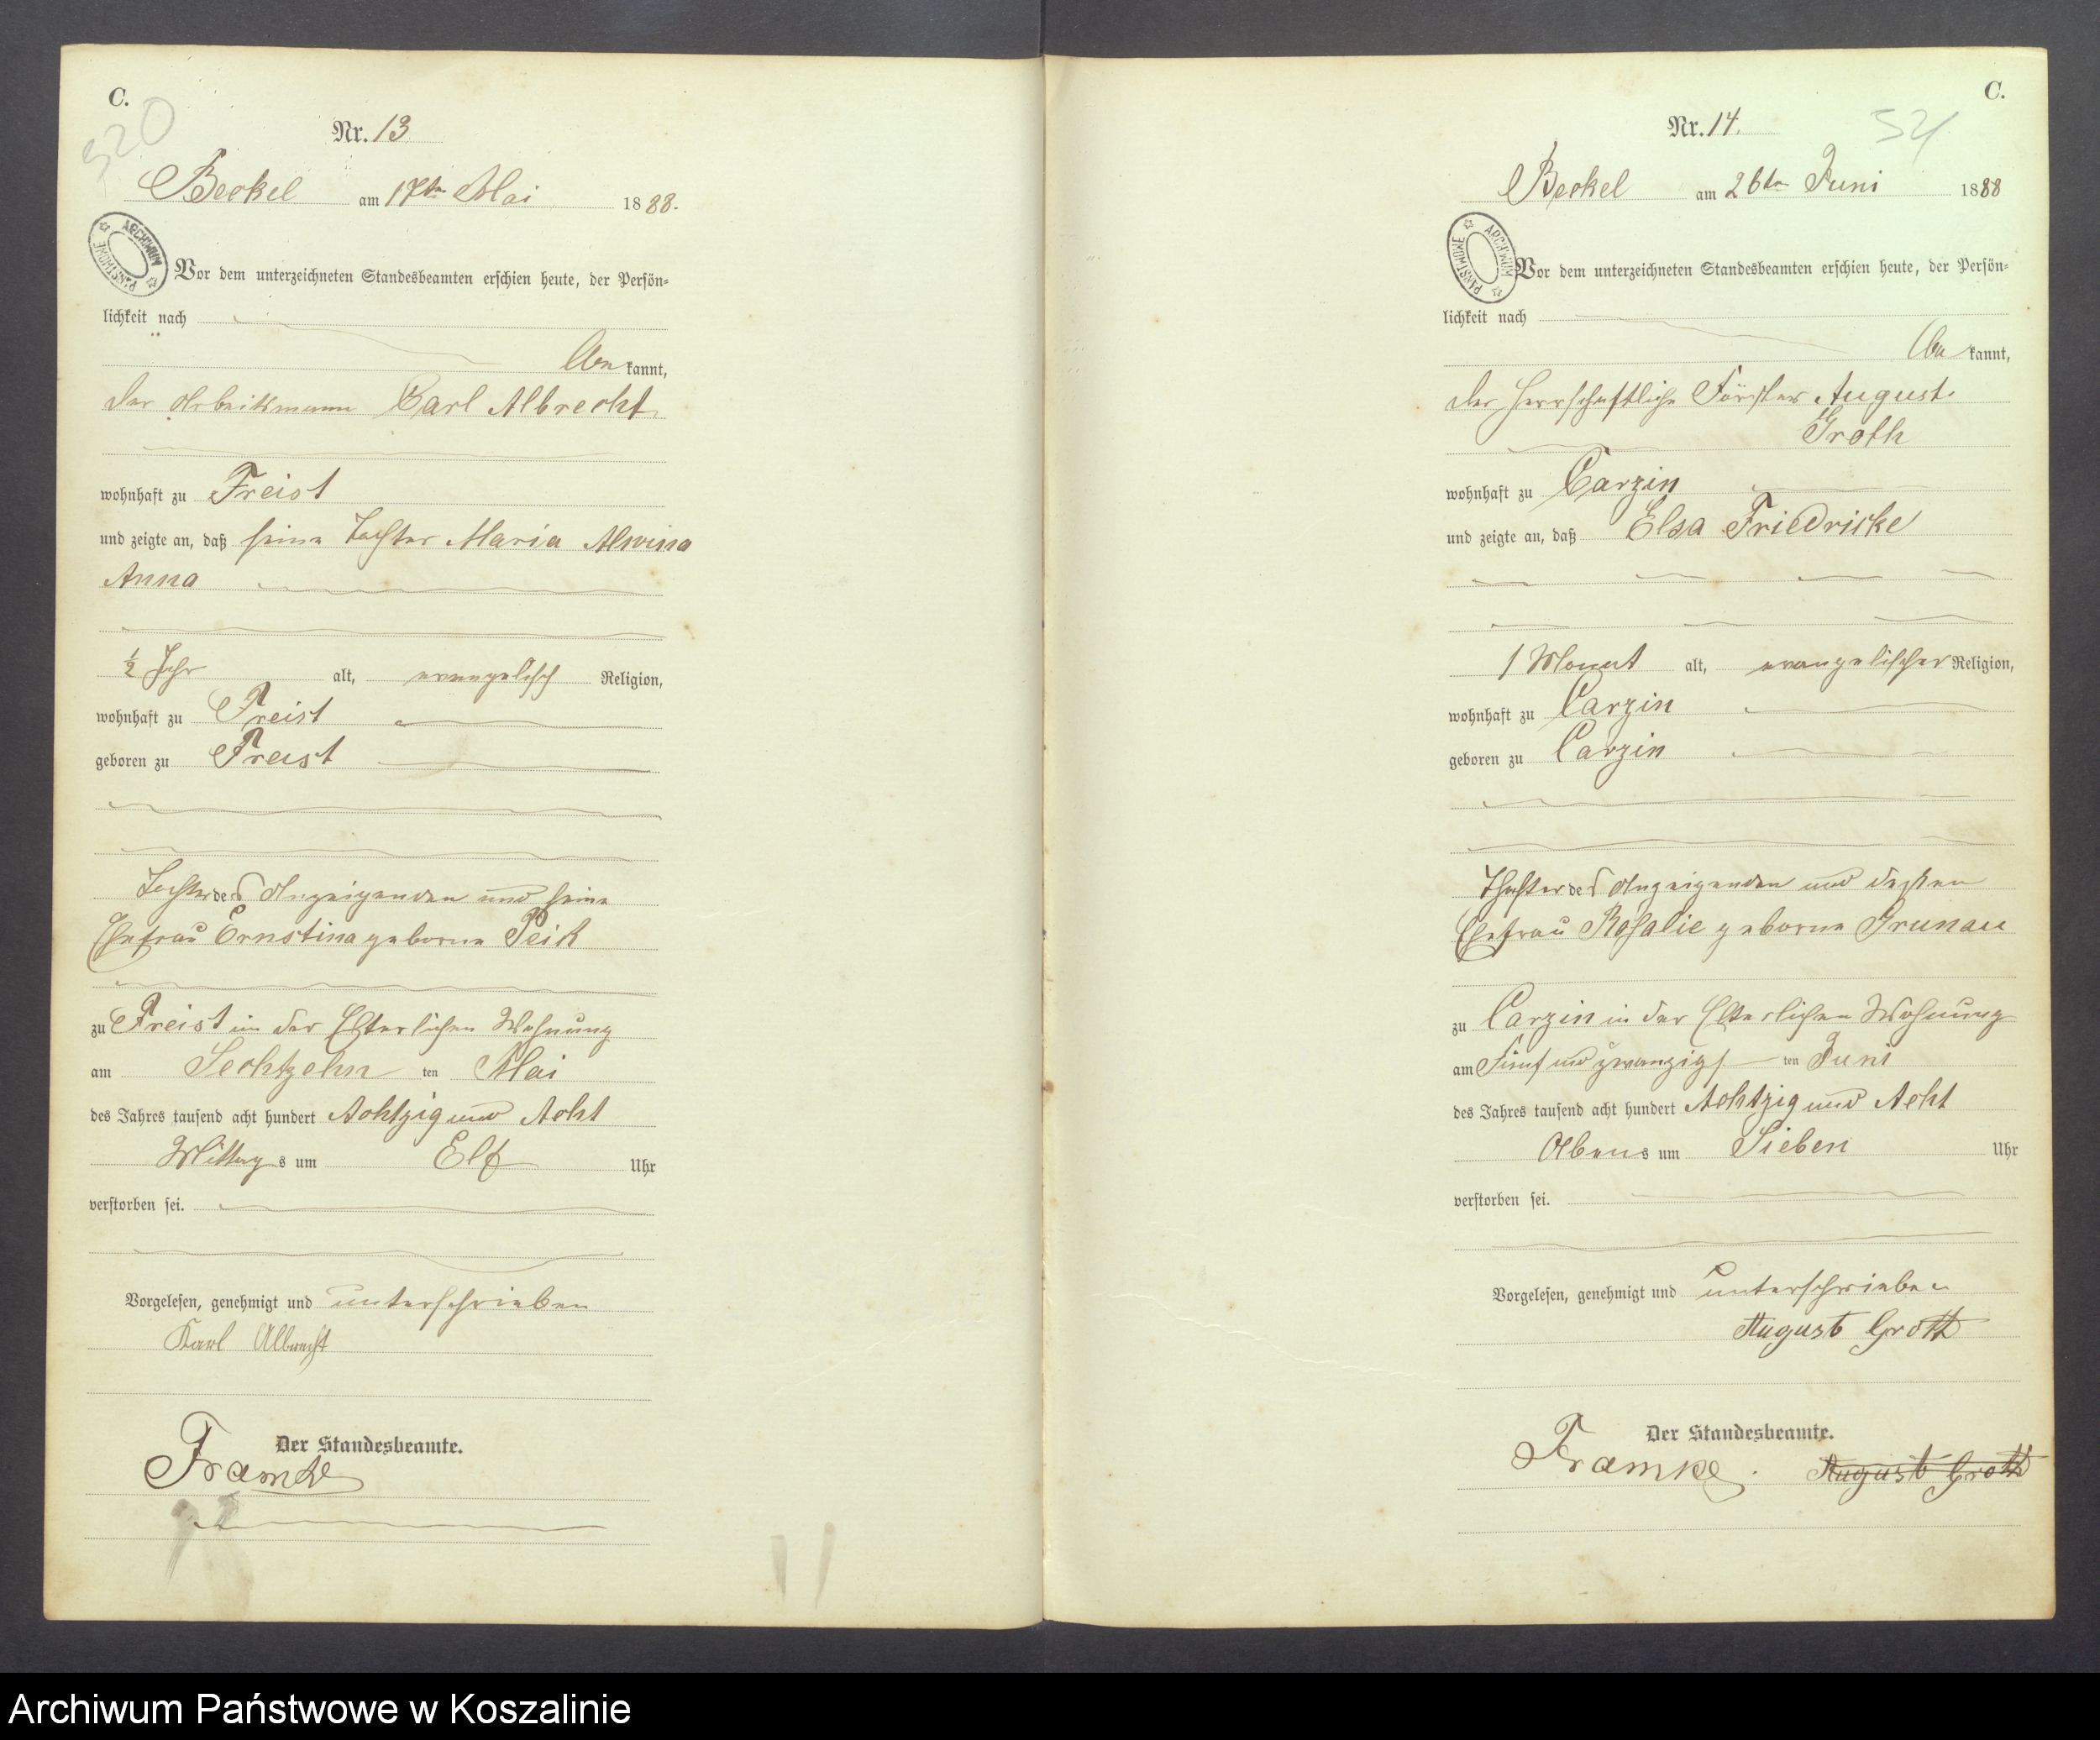 C.
320
Nr. 13
Beckel am 17ten Mai 1888.
ARCHIWUM PAŃSTWOWE
Vor dem unterzeichneten Standesbeamten erschien heute, der Persön-
lichkeit nach
be kannt,
der Arbeitsmann Carl Albrecht
wohnhaft zu Freist
und zeigte an, daß seine Tochter Maria Alwina
Anna
½ Jahr alt, evangelisch Religion,
wohnhaft zu Freist
geboren zu Freist
Tochter des Anzeigenden und seine
Ehefrau Ernstina geborne Peik
zu Freist in der Elterlichen Wohnung
am Sechtzehn ten Mai
des Jahres tausend acht hundert Achtzig und Acht
Mittags um Elf Uhr
verstorben sei.
Vorgelesen, genehmigt und unterschrieben
Karl Albrecht
Der Standesbeamte.
Framke
C.
Nr. 14.
Beckel am 26ten Juni 1888
ARCHIWUM PAŃSTWOWE
Vor dem unterzeichneten Standesbeamten erschien heute, der Persön-
lichkeit nach
be kannt,
der Herrschaftliche Förster August
Groth
wohnhaft zu Carzin
und zeigte an, daß Elsa Friedricke
1 Monat alt, evangelischer Religion,
wohnhaft zu Carzin
geboren zu Carzin
Thochter des Anzeigenden und dessen
Ehefrau Rosalie geborne Grunau
zu Carzin in der Elterlichen Wohnung
am Fünf und zwanzigs ten Juni
des Jahres tausend acht hundert Achtzig und Acht
Abens um Sieben Uhr
verstorben sei.
Vorgelesen, genehmigt und unterschrieben
August Groth
Der Standesbeamte.
Framke. August Groth
Archiwum Państwowe w Koszalinie